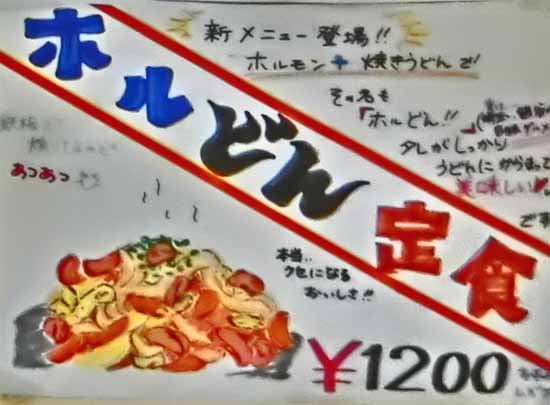 新メニュー登場!!
ホルモン+焼きうどんで
その名も
「ホルどん!!」
タレがしっかり
うどんにからまって
美味しい♥
ホルどん定食
あつあつ
本当、
クセになる
おいしさ!!
¥1200